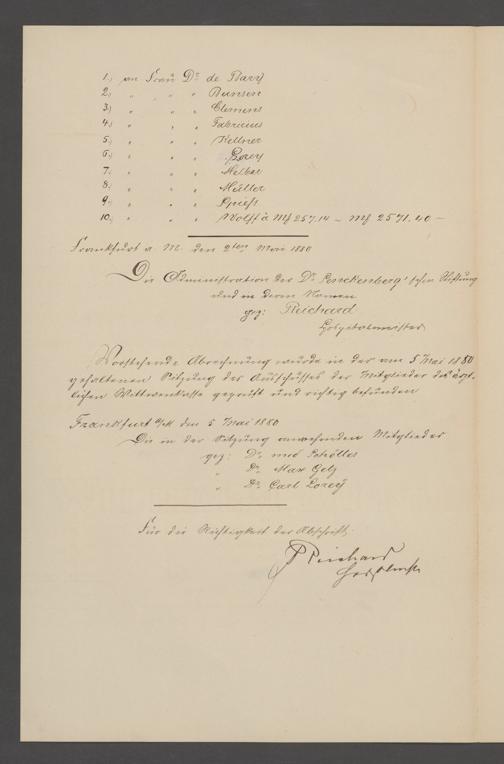 1.) an Frau Dr de Bary
2.) " " " Bansen
3.) " " " Clemens
4.) " " " Fabricius
5.) " " " Kellner
6.) " " " Lorey
7.) " " " Melber
8.) " " " Müller
9.) " " " Spieß
10.) " " " Wolff à Mf 257.14 – Mf 2571.40 –
Frankfurt a. M. den 2ten Mai 1880
Die Administration der Dr Senckenberg'schen Stiftung
und in deren Namen
gez: Reichard
Vorstehende Abrechnung wurde in der am 5 Mai 1880
gehaltenen Sitzung des Ausschusses der Mitglieder der ärzt-
lichen Wittwenkasse geprüft und richtig befunden
Frankfurt a/M den 5 Mai 1880
Die in der Sitzung anwesenden Mitglieder
gez: Dr med Schölles
" Dr Max Getz
" Dr Carl Lorey
Für die Richtigkeit der Abschrift.
Reichard